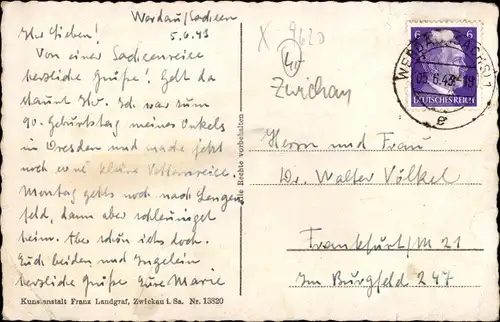 Werdau/Sachsen
5.6.43
Ihr Lieben!
Von einer Sachsenreise
herzliche Grüße! Gelt da
staunt Ihr. Ich war zum
90. Geburtstag meines Onkels
in Dresden und mache jetzt
noch eine kleine Vetternreise.
Montag gehts noch nach Lengen-
feld, dann aber schleunigst
heim. Aber schön ists doch.
Euch beiden und Ingelein
herzliche Grüße Eure Marie
Kunstanstalt Franz Landgraf, Zwickau i. Sa. Nr. 13820
Alle Rechte vorbehalten
X 9620
40
Zwickau
6 6
DEUTSCHES REICH
WERDAU (SACHS) 1
05.6.43-19
g
Herrn und Frau
Dr. Walter Völkel
Frankfurt/M 21
Im Burgfeld 247